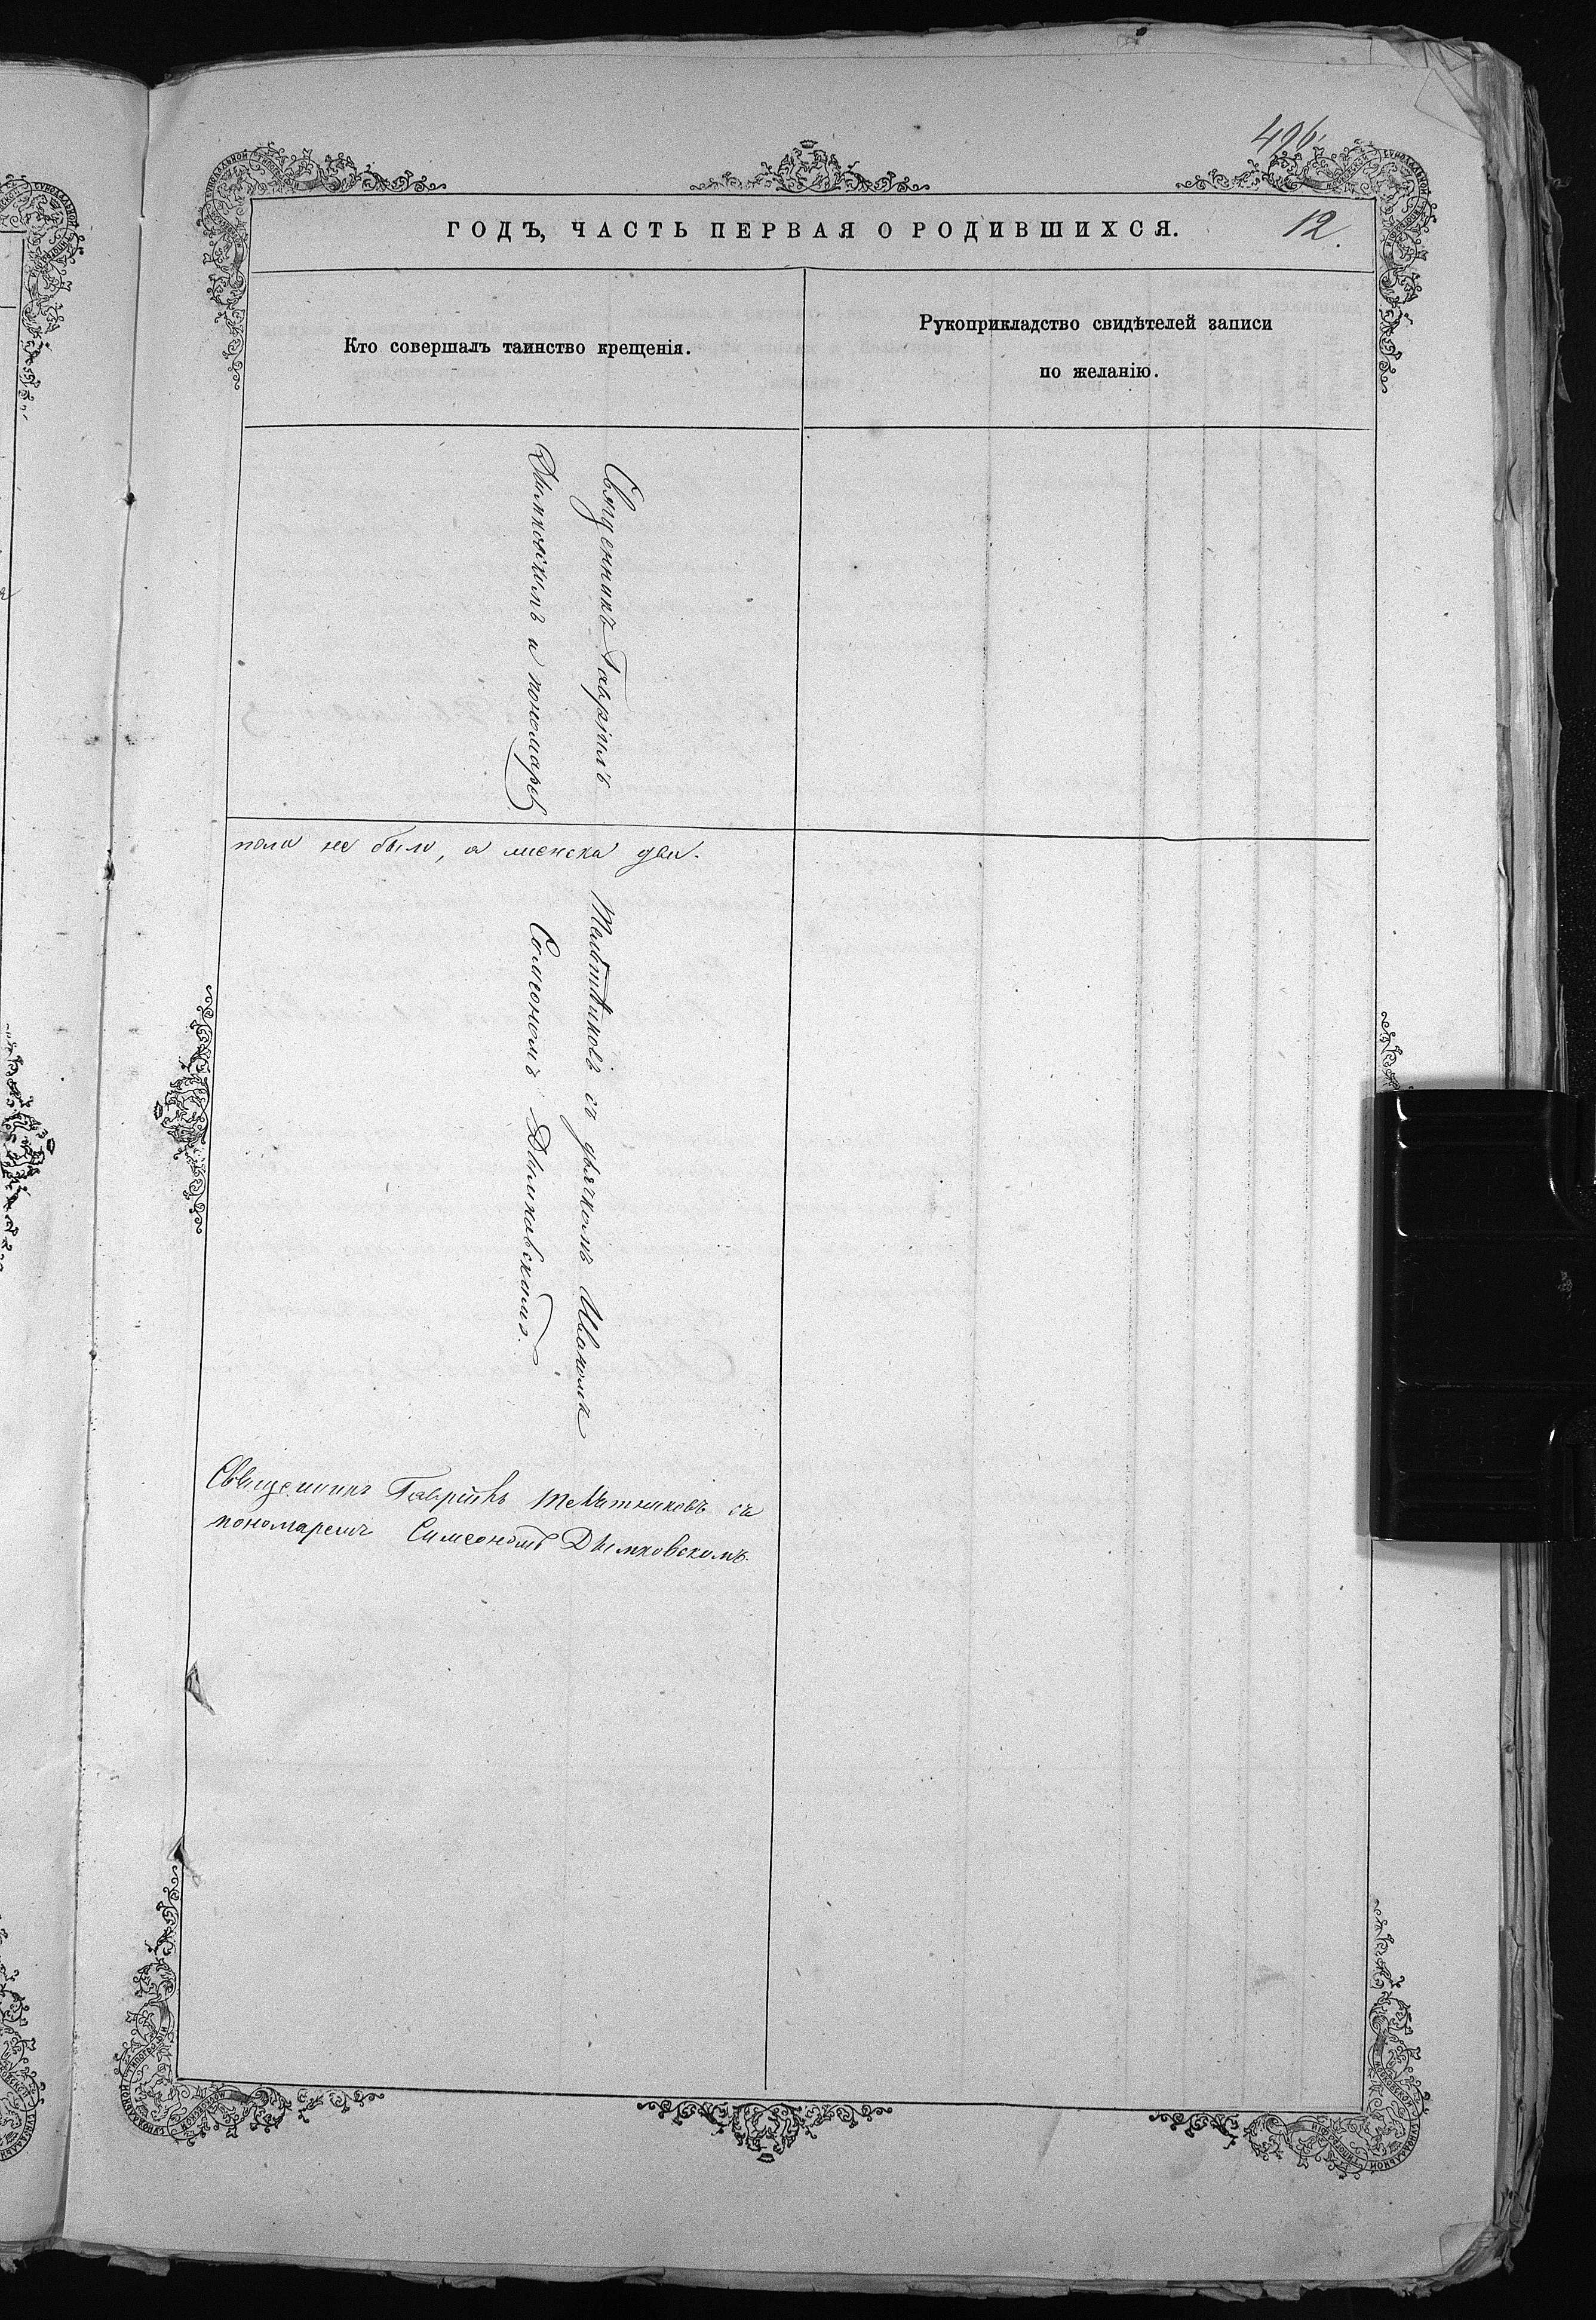 496.
ГОДЪ, ЧАСТЬ ПЕРВАЯ О РОДИВШИХСЯ.
12.
Кто совершалъ таинство крещенія.
Рукоприкладство свидѣтелей записи
по желанію.
Священникъ Гавріилъ
Дымковскимъ и пономаре
пола не было, а женска два.
съ дьячкомъ Иваномъ
Симеономъ Дымковскимъ.
Священникъ Гавріилъ съ
пономаремъ Симеономъ Дымковскомъ.